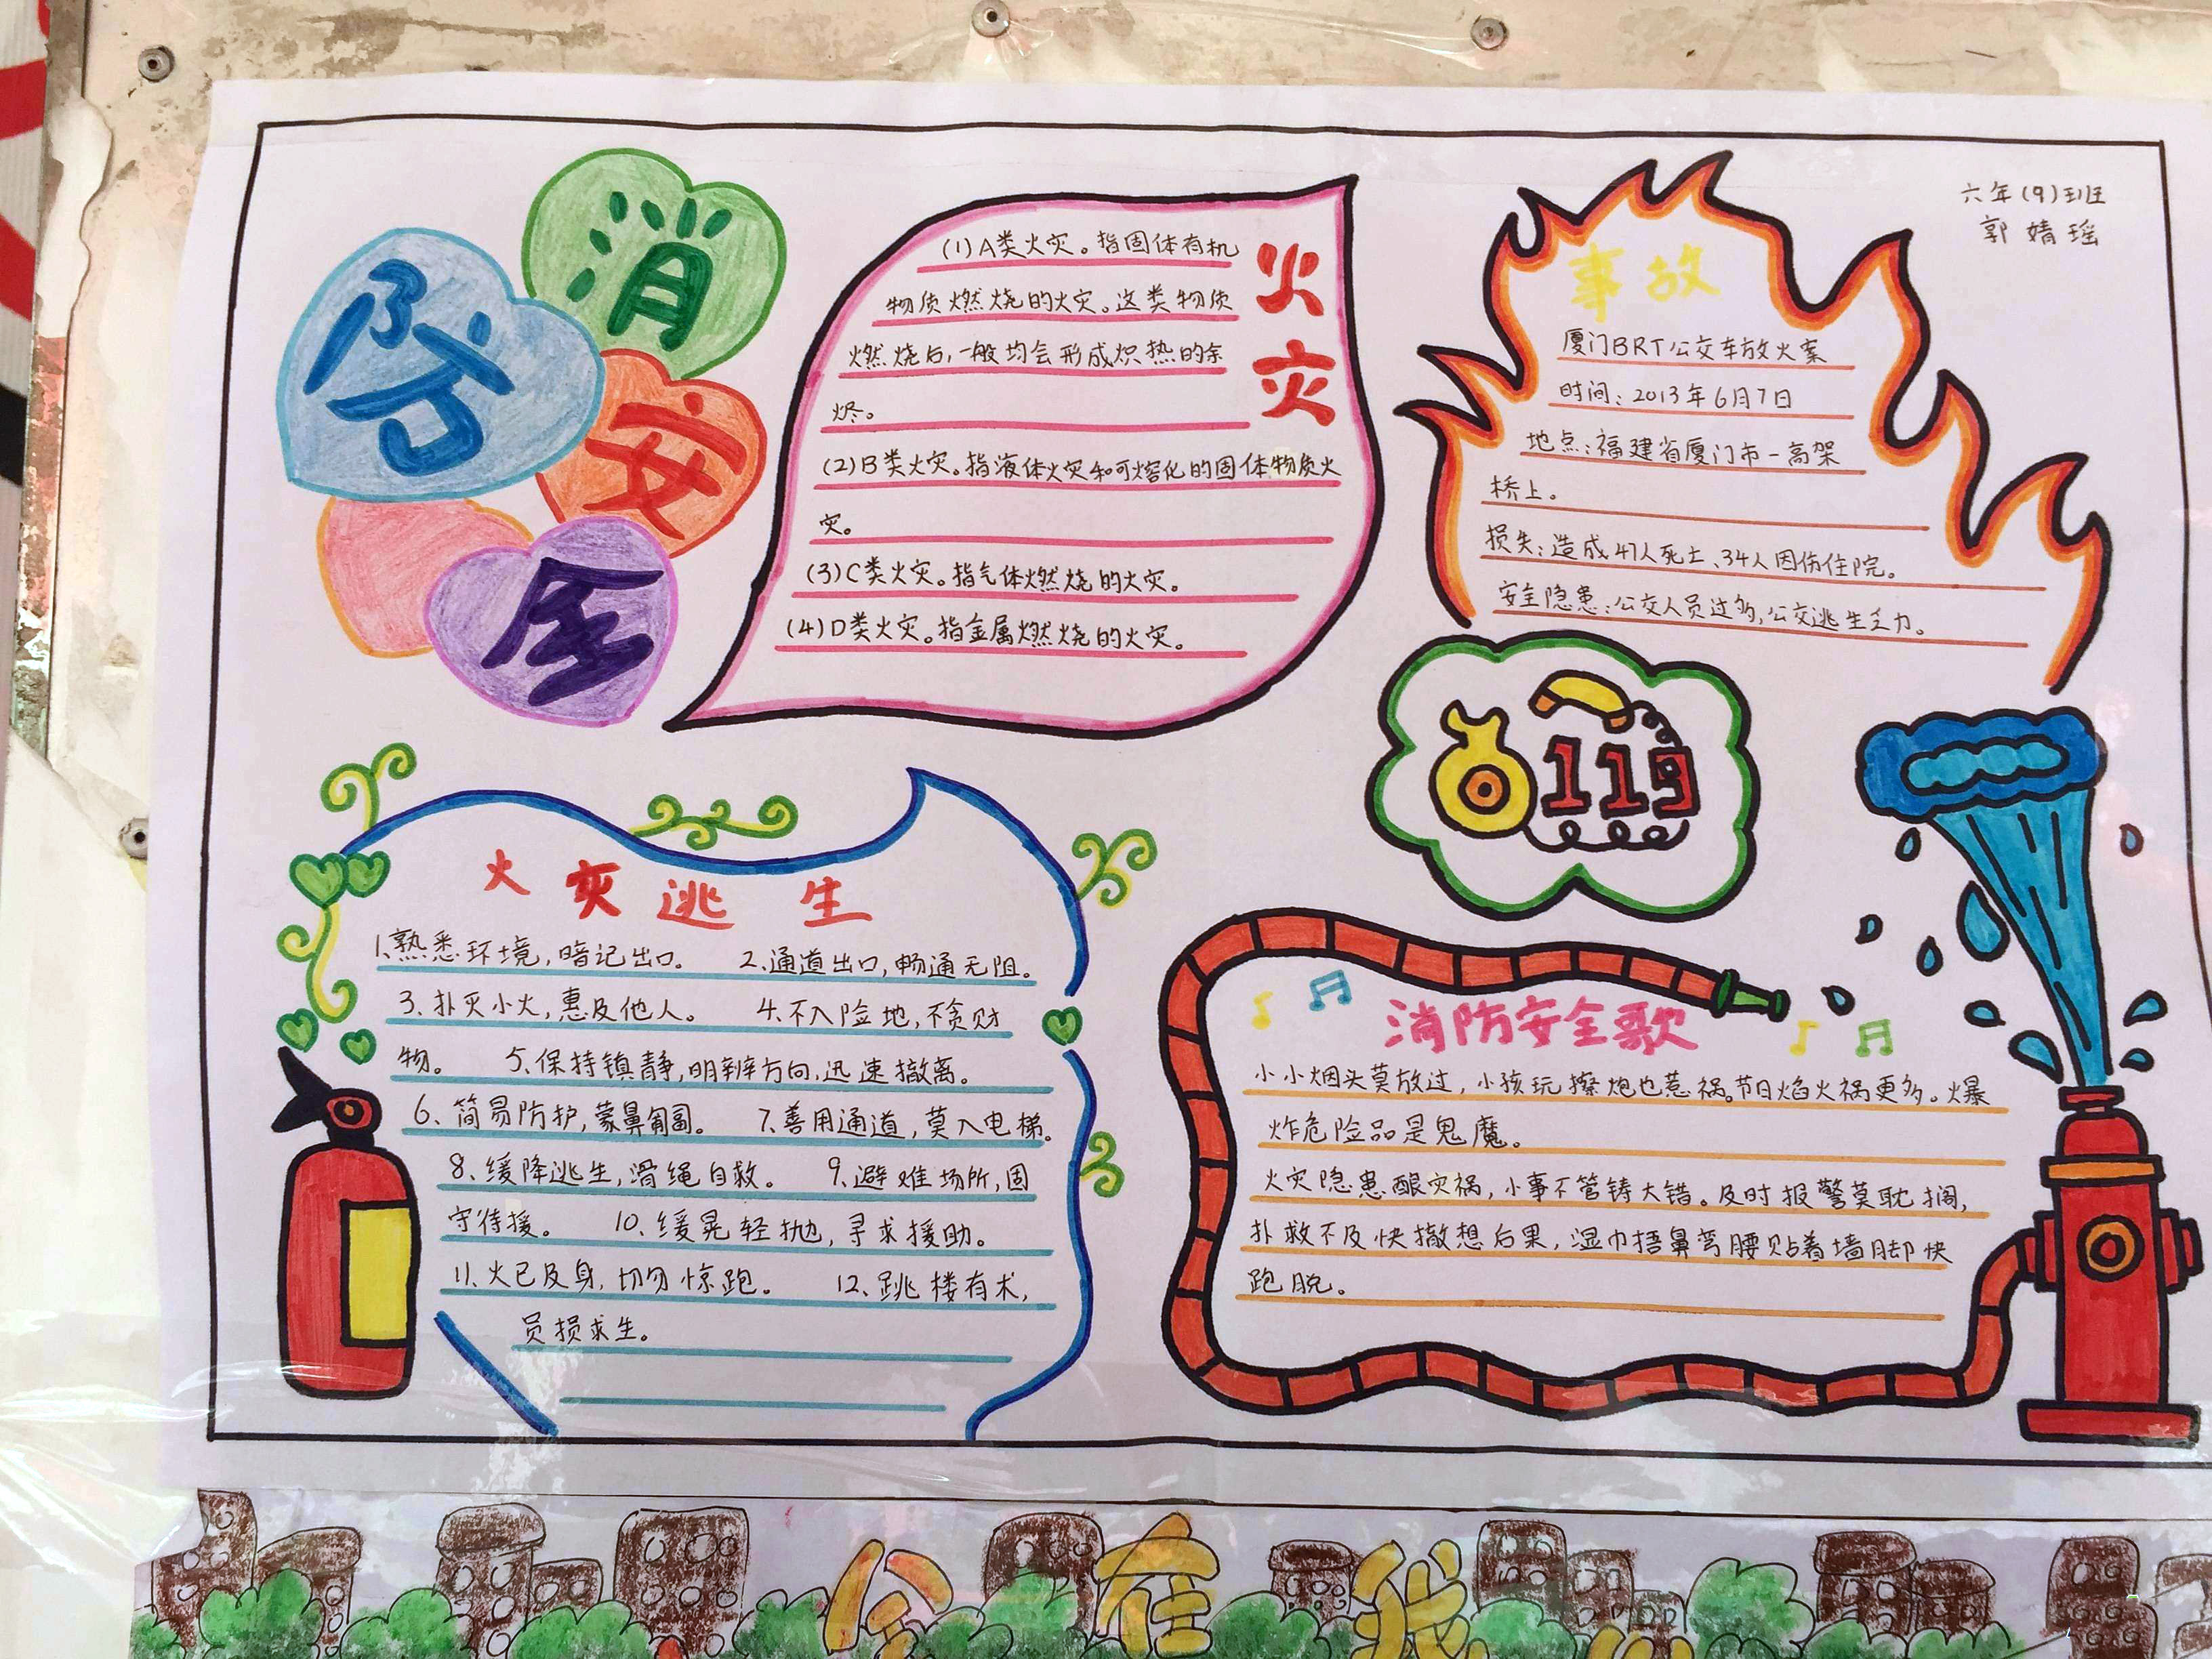 消
防
安
全
火灾
(1)A类火灾。指固体有机
物质燃烧的火灾。这类物质
燃烧后,一般均会形成炽热的余
烬。
(2)B类火灾。指液体火灾和可熔化的固体物质火
灾。
(3)C类火灾。指气体燃烧的火灾。
(4)D类火灾。指金属燃烧的火灾。
六年(9)班
郭婧瑶
事故
厦门BRT公交车放火案
时间:2013年6月7日
地点:福建省厦门市一高架
桥上。
损失:造成47人死亡、34人因伤住院。
安全隐患:公交人员过多,公交逃生乏力。
119
火灾逃生
1、熟悉环境,暗记出口。 2、通道出口,畅通无阻。
3、扑灭小火,惠及他人。 4、不入险地,不贪财
物。 5、保持镇静,明辨方向,迅速撤离。
6、简易防护,蒙鼻匍匐。 7、善用通道,莫入电梯。
8、缓降逃生,滑绳自救。 9、避难场所,固
守待援。 10、缓晃轻抛,寻求援助。
11、火已及身,切勿惊跑。 12、跳楼有术,
员损求生。
消防安全歌
小小烟头莫放过,小孩玩擦炮也惹祸。节日焰火祸更多。爆
炸危险品是鬼魔。
火灾隐患酿灾祸,小事不管铸大错。及时报警莫耽搁,
扑救不及快撤想后果,湿巾捂鼻弯腰贴着墙脚快
跑脱。
全在我